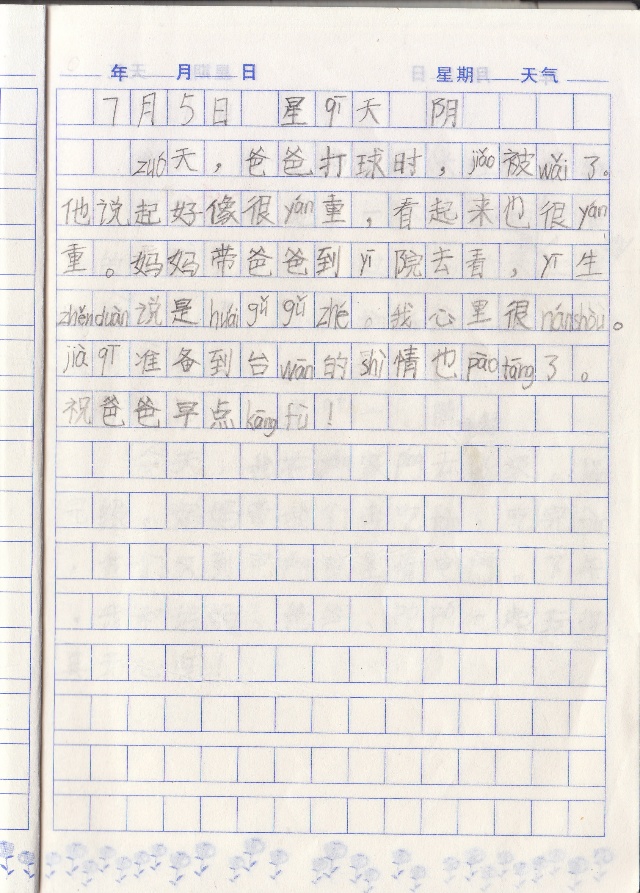 年 月 日 星期 天气
7月5日 星qī天 阴
zuó天，爸爸打球时，jiǎo被wǎi了。
他说起好像很yán重，看起来也很yán
重。妈妈带爸爸到yī院去看，yī生
zhěnduàn说是huái gǔ gǔ zhé。我心里很nánshòu。
jià qī准备到台wān的shì情也pào tāng了。
祝爸爸早点kāng fù！